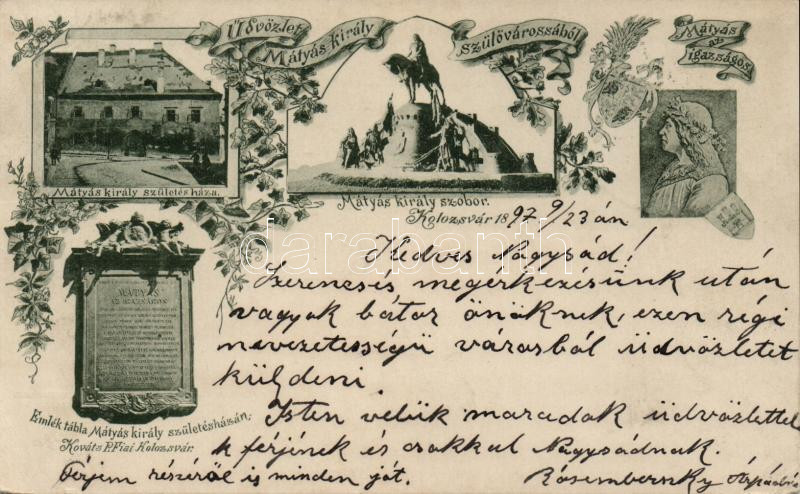 Üdvözlet Mátyás király szülővárossából
Mátyás
az
igazságos.
Mátyás király születés háza.
Mátyás király szobor.
Kolozsvár 1897 9/23 án
Kedves Nagysád!
Szerencsés megérkezésünk után
vagyok bátor önöknek, ezen régi
nevezetességü városból üdvözletet
küldeni.
Isten velük maradok üdvözlettel
k férjének és csakkal Nagysádnak.
Férjem részéről is minden jót.
MÁTYÁS
AZ IGAZSÁGOS
Emlék tábla Mátyás király születésházán.
Kováts P. Fiai Kolozsvár.
darabanth